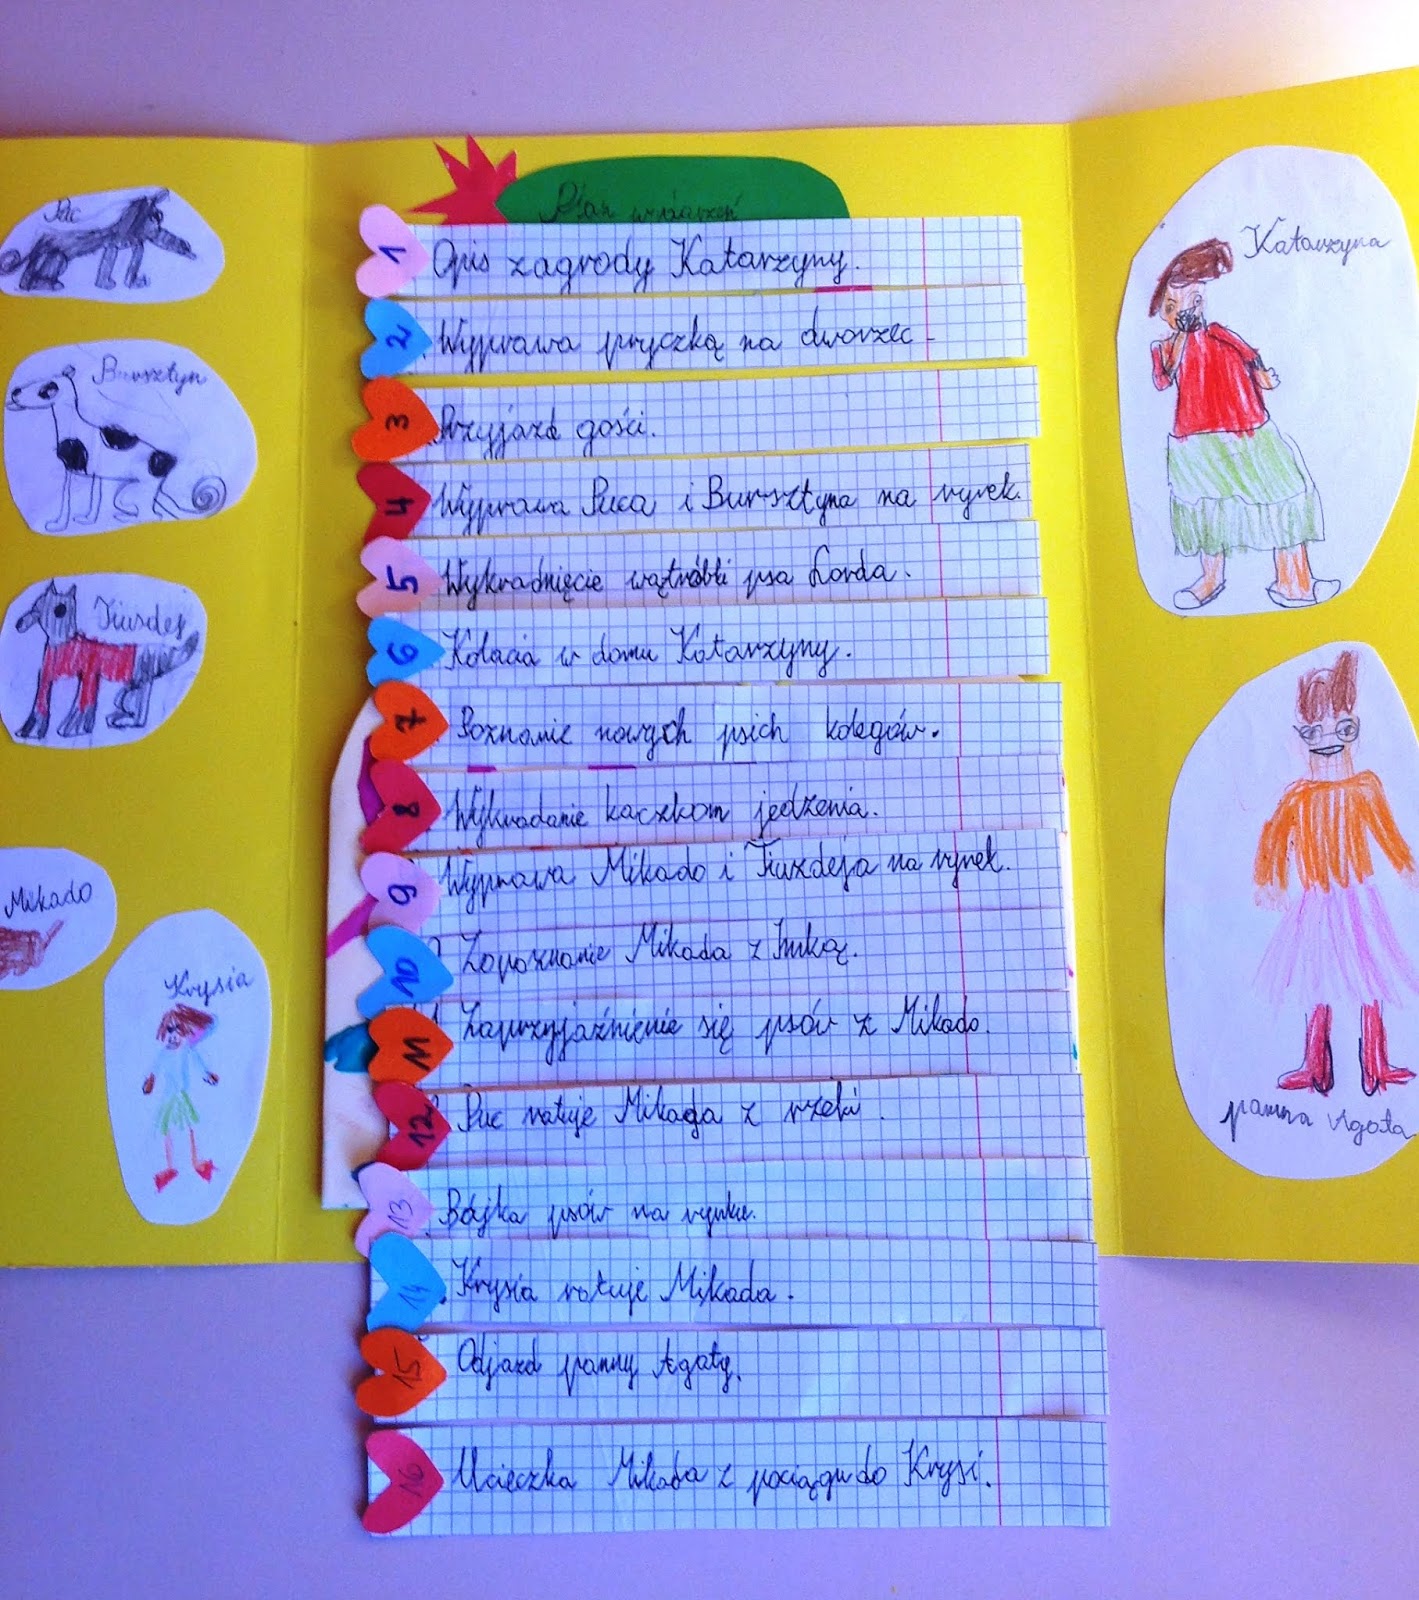 Plan wydarzeń
1 Opis zagrody Katarzyny.
2 Wyprawa bryczką na dworzec.
3 Przyjazd gości.
4 Wyprawa Puca i Bursztyna na rynek.
5 Wykradnięcie wątróbki psa Lorda.
6 Kolacia w domu Katarzyny.
7 Poznanie nowych psich kolegów.
8 Wykradanie kaczkom jedzenia.
9 Wyprawa Mikado i Tiuzdeja na rynek.
10 Zapoznanie Mikada z Imką.
11 Zaprzyjaźnienie się psów z Mikado.
12 Puc ratuje Mikada z rzeki.
13 Bójka psów na rynku.
14 Krysia ratuje Mikada.
15 Odjazd panny Agaty.
16 Ucieczka Mikada z pociągu do Krysi.
Puc
Bursztyn
Tiuzdej
Mikado
Krysia
Katarzyna
panna Agata